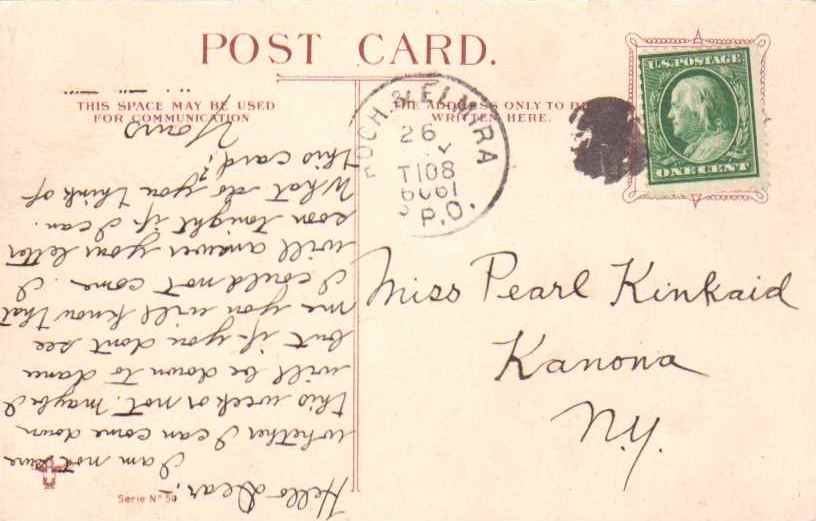 POST CARD.
THIS SPACE MAY BE USED
FOR COMMUNICATION
THE ADDRESS ONLY TO BE
WRITTEN HERE.
U.S. POSTAGE
ONE CENT
ROCH. & ELMIRA
26
T108
P.O.
Miss Pearl Kinkaid
Kanona
N.Y.
Hello Dear;—
I am not sure
whether I can come down
this week or not. maybe I
will be down to dance
but if you dont see
me you will know that
I could not come. I
will answer your letter
soon tonight if I can.
What do you think of
this card?
Yours
Serie No 50